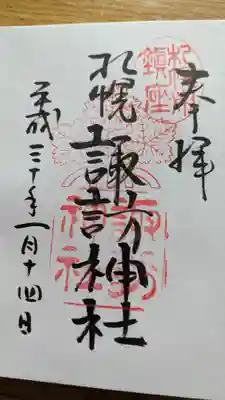 奉拝
札幌鎮座
札幌諏訪神社
諏訪神社
平成三十年一月十四日